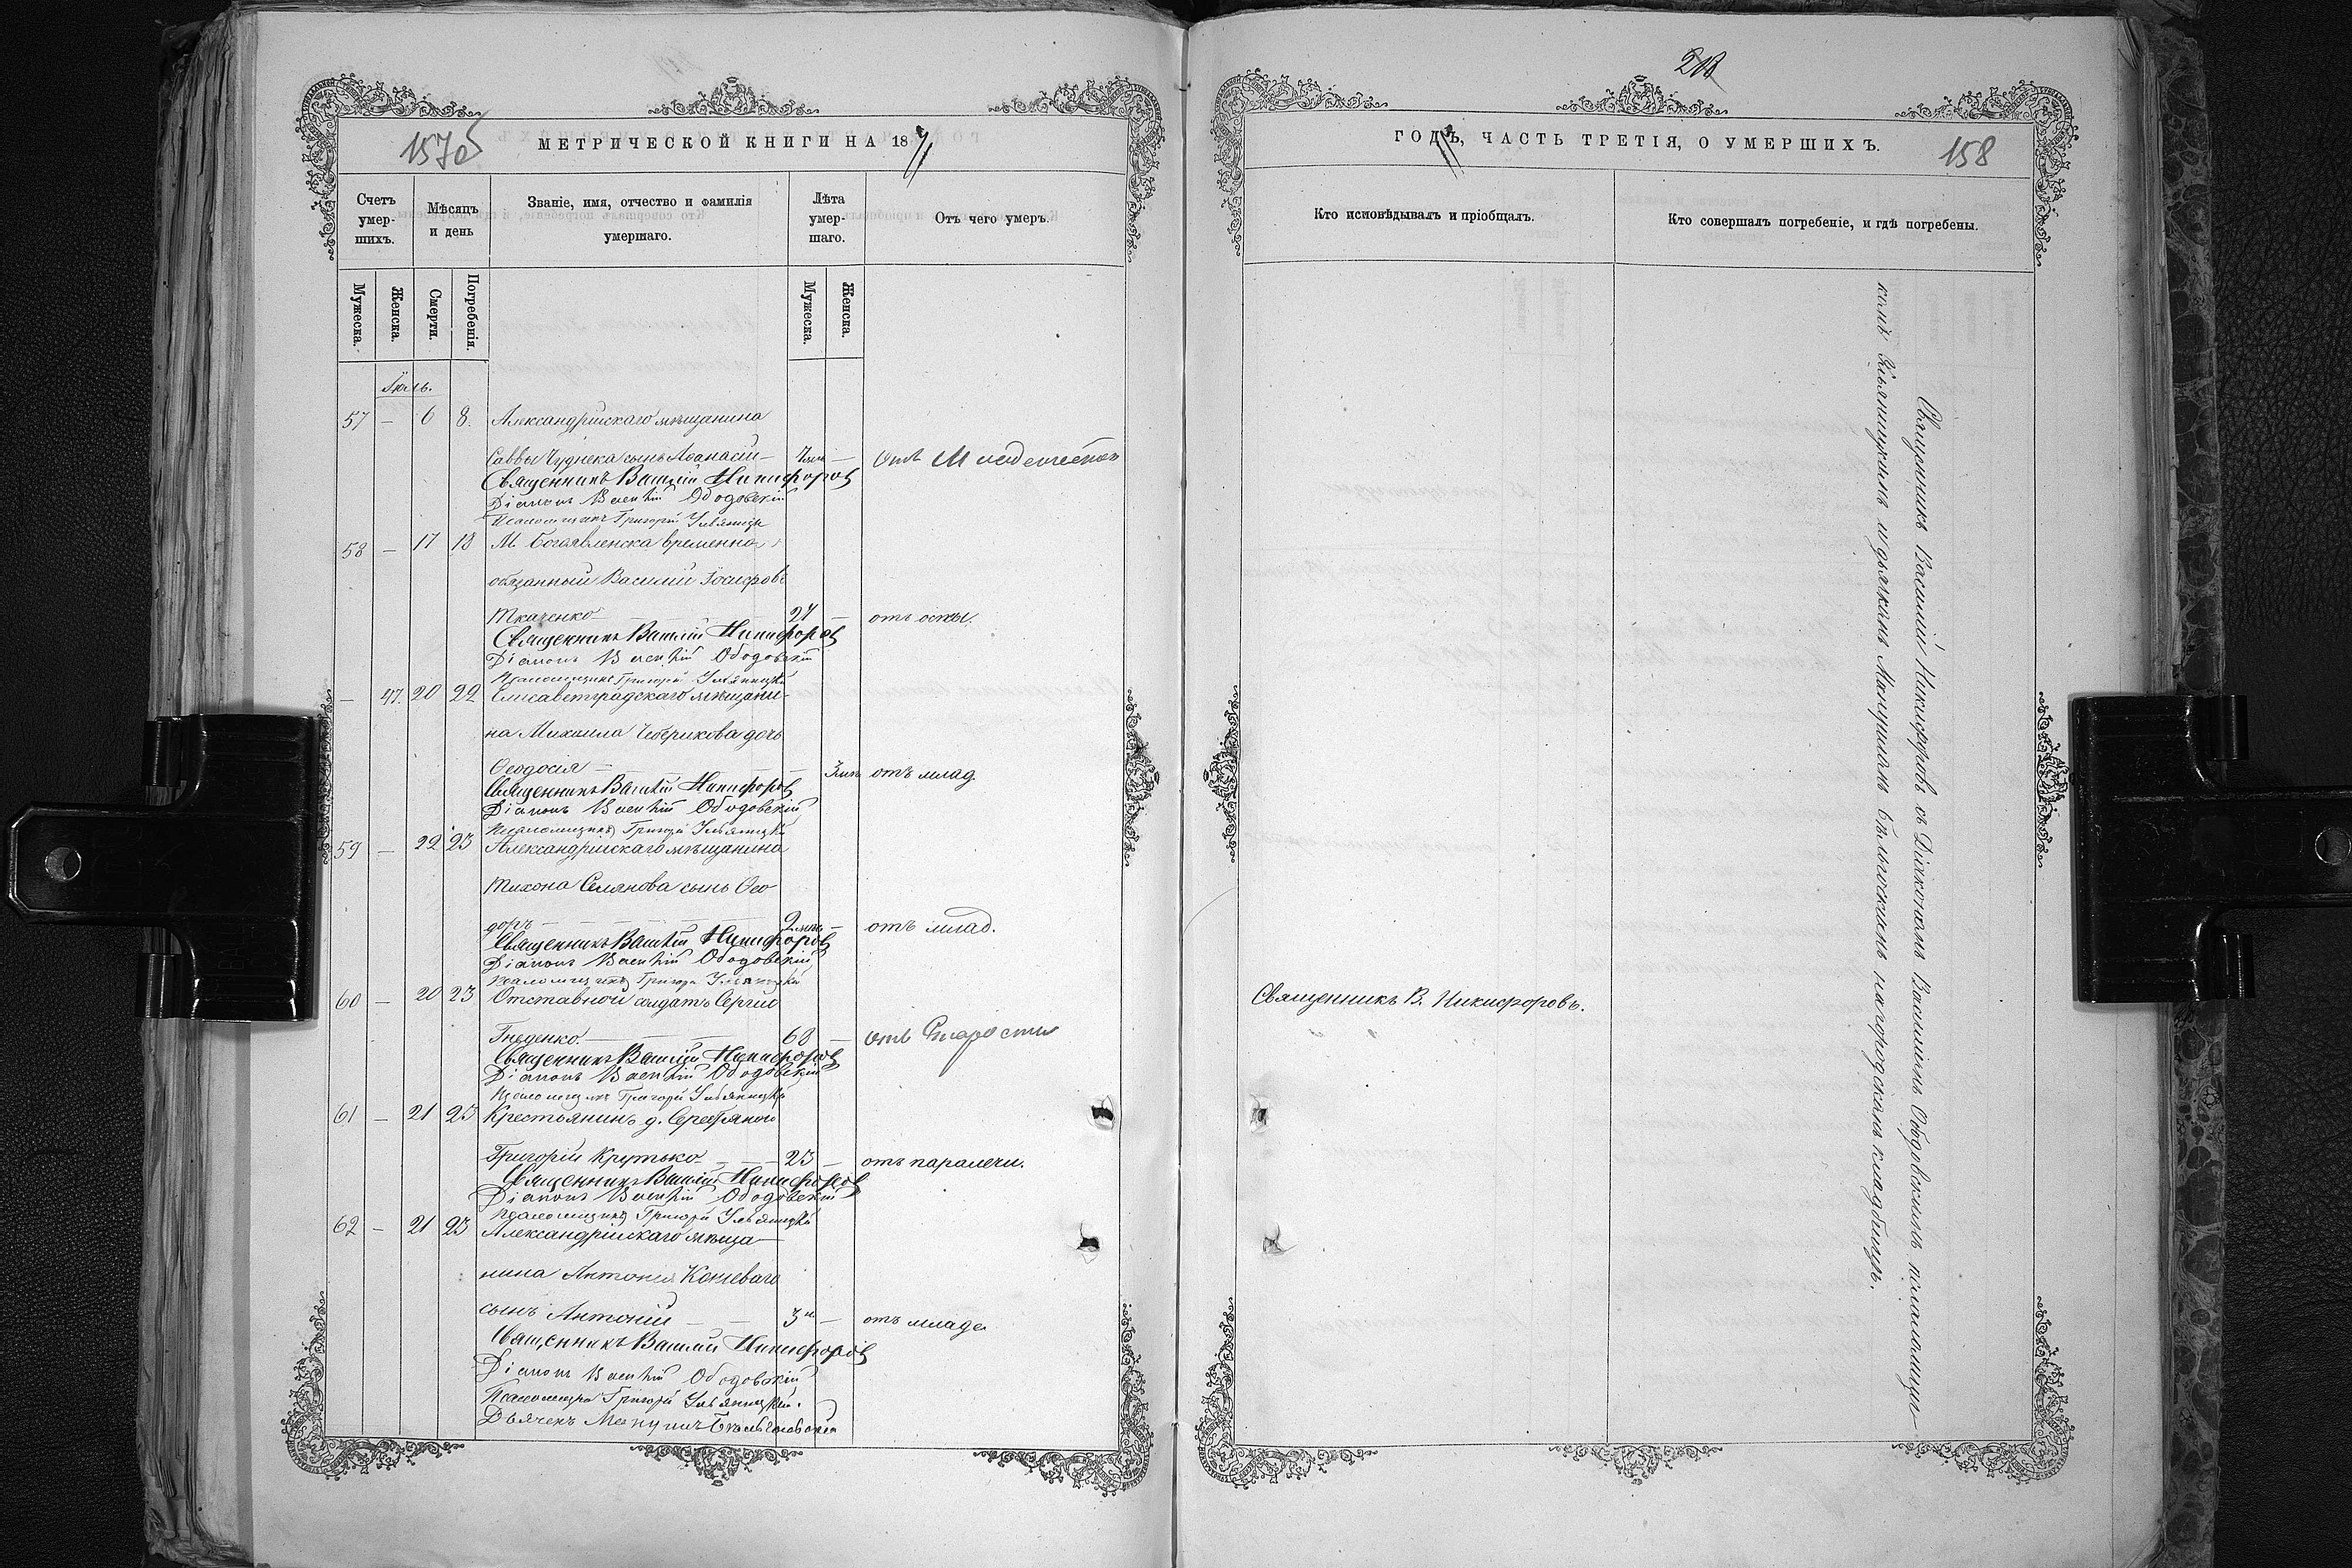 157об
МЕТРИЧЕСКОЙ КНИГИ НА 187
Счетъ умер-шихъ.
Мѣсяцъ и день
Званіе, имя, отчество и фамилія умершаго.
Лѣта умер-шаго.
Отъ чего умеръ.
Мужеска.
Женска.
Смерти.
Погребенія.
Мужеска.
Женска.
Іюль.
57 — 6 8. Александрійскаго мѣщанина
Саввы Чуднека сынъ Аѳанасій — — отъ Младенчества
Священникъ Василій Никифоровъ
Діаконъ Василій Ободовскій
Псаломщикъ Григорій Ульяницкій
58 — 17 18 М. Богоявленска временно-
обязанный Василій Іосифовъ
Ткаченко — — — 24 — отъ оспы.
Священникъ Василій Никифоровъ
Діаконъ Василій Ободовскій
Псаломщикъ Григорій Ульяницкій
— 47. 20 22 Елисаветградскаго мѣщани-
на Михаила Чебрикова дочь
Ѳеодосія — — — 3 отъ млад.
Священникъ Василій Никифоровъ
Діаконъ Василій Ободовскій
Псаломщикъ Григорій Ульяницкій
59 — 22 23 Александрійскаго мѣщанина
Тихона Селянова сынъ Ѳео
доръ — — — 2 — отъ млад.
Священникъ Василій Никифоровъ
Діаконъ Василій Ободовскій
Псаломщикъ Григорій Ульяницкій
60 — 20 23 Отставной солдатъ Сергій
Гнеденко. — — 68 — отъ Старости
Священникъ Василій Никифоровъ
Діаконъ Василій Ободовскій
Псаломщикъ Григорій Ульяницкій
61 — 21 23 Крестьянинъ д. Серебряной
Григорій Крутько — — 23 — отъ паралечи.
Священникъ Василій Никифоровъ
Діаконъ Василій Ободовскій
Псаломщикъ Григорій Ульяницкій
62 — 21 23 Александрійскаго мѣща-
нина Антонія Кошеваго
сынъ Антоній — — 3 м. — отъ младе
Священникъ Василій Никифоровъ
Діаконъ Василій Ободовскій
Псаломщикъ Григорій Ульяницкій.
Дьячекъ Мануилъ Бѣльговскій
213
ГОДЪ, ЧАСТЬ ТРЕТІЯ, О УМЕРШИХЪ.
158
Кто исповѣдывалъ и пріобщалъ.
Кто совершалъ погребеніе, и гдѣ погребены.
Священникъ В. Никифоровъ.
Священникъ Василій Никифоровъ съ Діакономъ Василіемъ Ободовскимъ псаломщи-
комъ Ульяницкимъ и дьячкомъ Мануиломъ Бѣльговскимъ на городскомъ кладбищѣ.